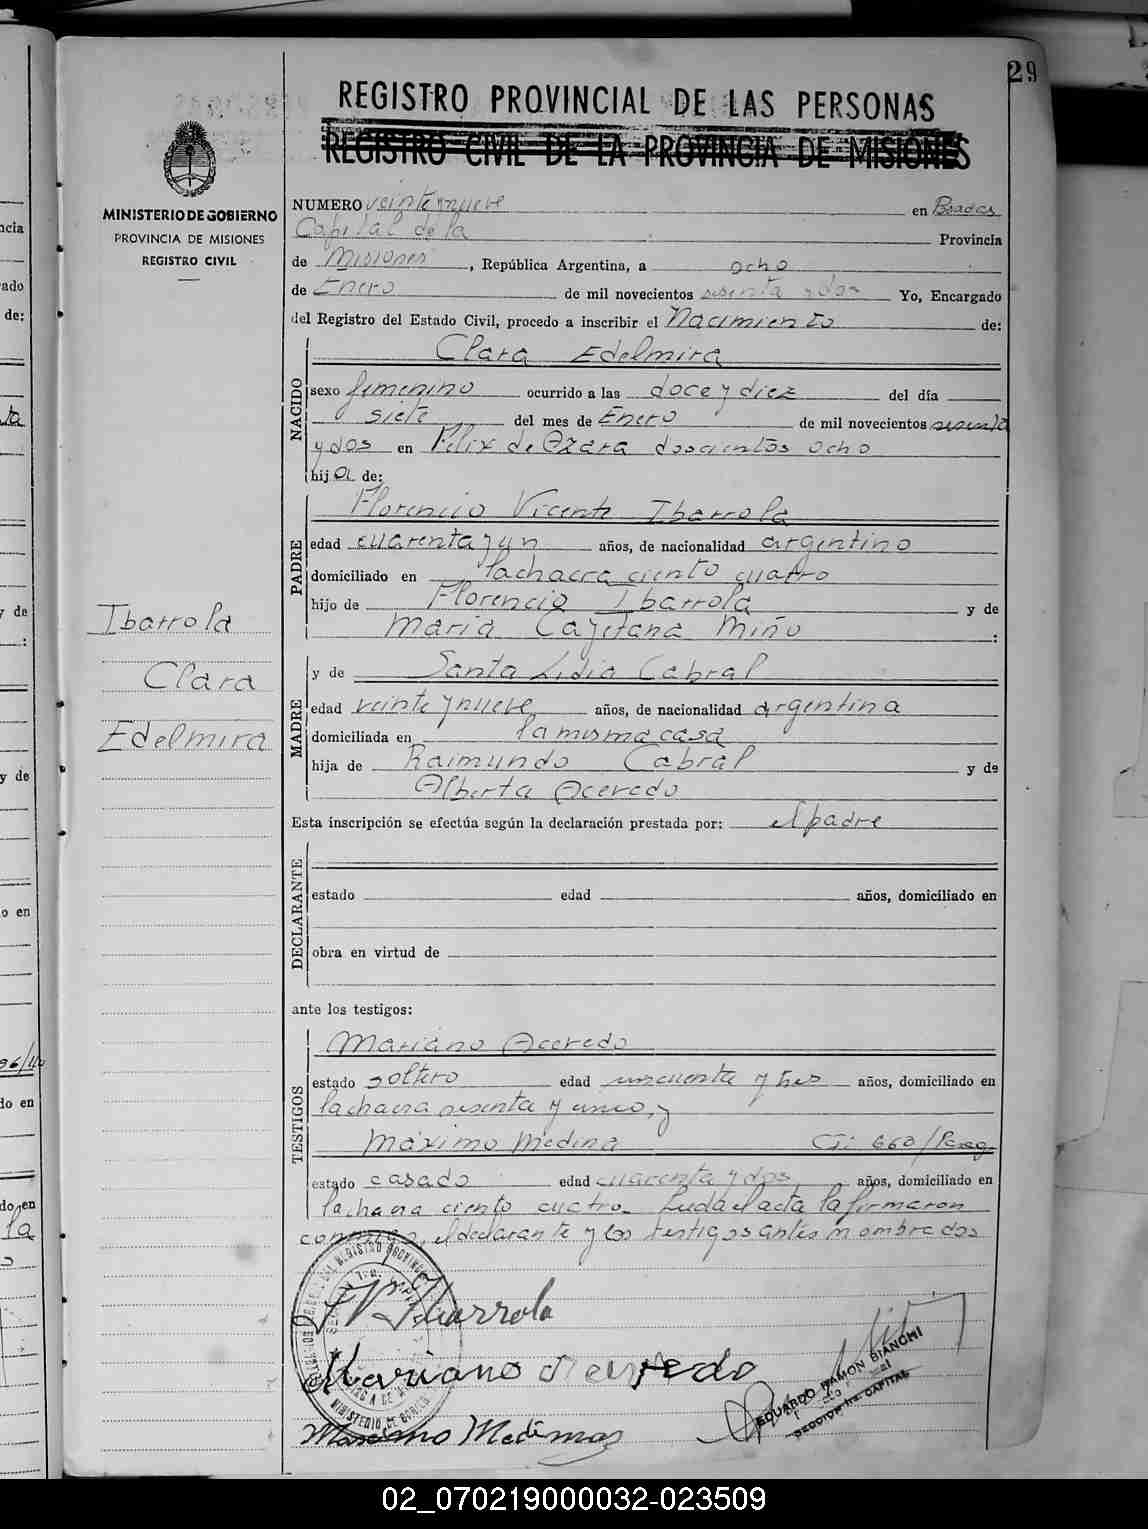 29
REGISTRO PROVINCIAL DE LAS PERSONAS
REGISTRO CIVIL DE LA PROVINCIA DE MISIONES
MINISTERIO DE GOBIERNO
PROVINCIA DE MISIONES
REGISTRO CIVIL
NUMERO veinte y nueve en Posadas
Capital de la Provincia
de Misiones, República Argentina, a ocho
de Enero de mil novecientos sesenta y dos Yo, Encargado
del Registro del Estado Civil, procedo a inscribir el Nacimiento de:
Clara Edelmira
NACIDO
sexo femenino ocurrido a las doce y diez del día
siete del mes de Enero de mil novecientos sesenta
y dos en Felix de Azara doscientos ocho
hija de:
Florencio Vicente Ibarrola
PADRE
edad cuarenta y un años, de nacionalidad argentino
domiciliado en la chacra ciento cuatro
hijo de Florencio Ibarrola y de
Maria Cayetana Miño :
Ibarrola
Clara
Edelmira
y de Santa Lidia Cabral
MADRE
edad veinte y nueve años, de nacionalidad argentina
domiciliada en la misma casa
hija de Raimundo Cabral y de
Alberta Acevedo
Esta inscripción se efectúa según la declaración prestada por: el padre
DECLARANTE
estado edad años, domiciliado en
obra en virtud de
ante los testigos:
Mariano Acevedo
TESTIGOS
estado soltero edad cincuenta y tres años, domiciliado en
la chacra sesenta y cinco, y
Máximo Medina C.I. 660/
estado casado edad cuarenta y dos, años, domiciliado en
la chacra ciento cuatro. Leida el acta la firmaron
conmigo, el declarante y los testigos antes nombrados
F V Ibarrola
Mariano Acevedo
Medina
EDUARDO RAMON BIANCHI
SECCION 1ra. CAPITAL
02_070219000032-023509